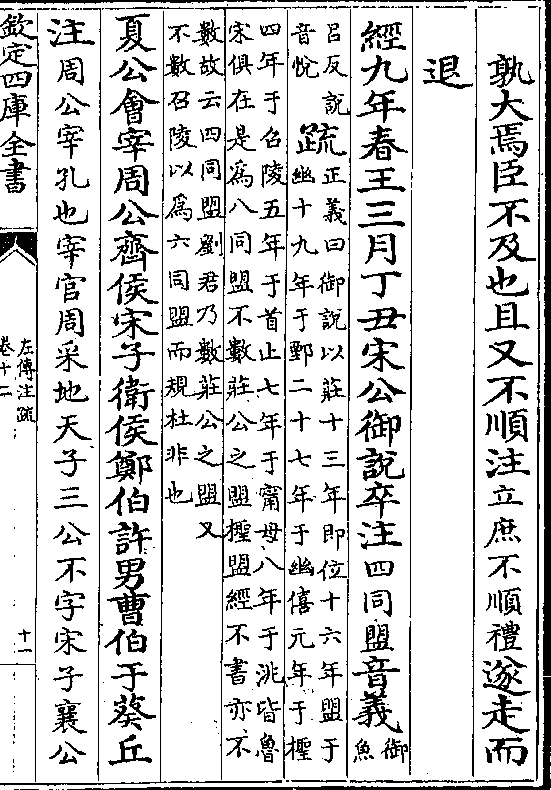 孰大焉臣不及也且又不順注立庶不順禮遂走而
退
經九年春王三月丁丑宋公御說卒注四同盟音義御魚
呂反說
音悅
疏
正義曰御說以莊十三年即位十六年盟于
幽十九年于鄄二十七年于幽僖元年于檉
四年于召陵五年于首止七年于甯母八年于洮皆魯
宋俱在是爲八同盟不數莊公之盟檉盟經不書亦不
數故云四同盟劉君乃數莊公之盟又
不數召陵以爲六同盟而規杜非也
夏公會宰周公齊侯宋子衛侯鄭伯許男曹伯于葵丘
注周公宰孔也宰官周采地天子三公不字宋子襄公
欽定四庫全書
左傳注疏
卷十二
十一